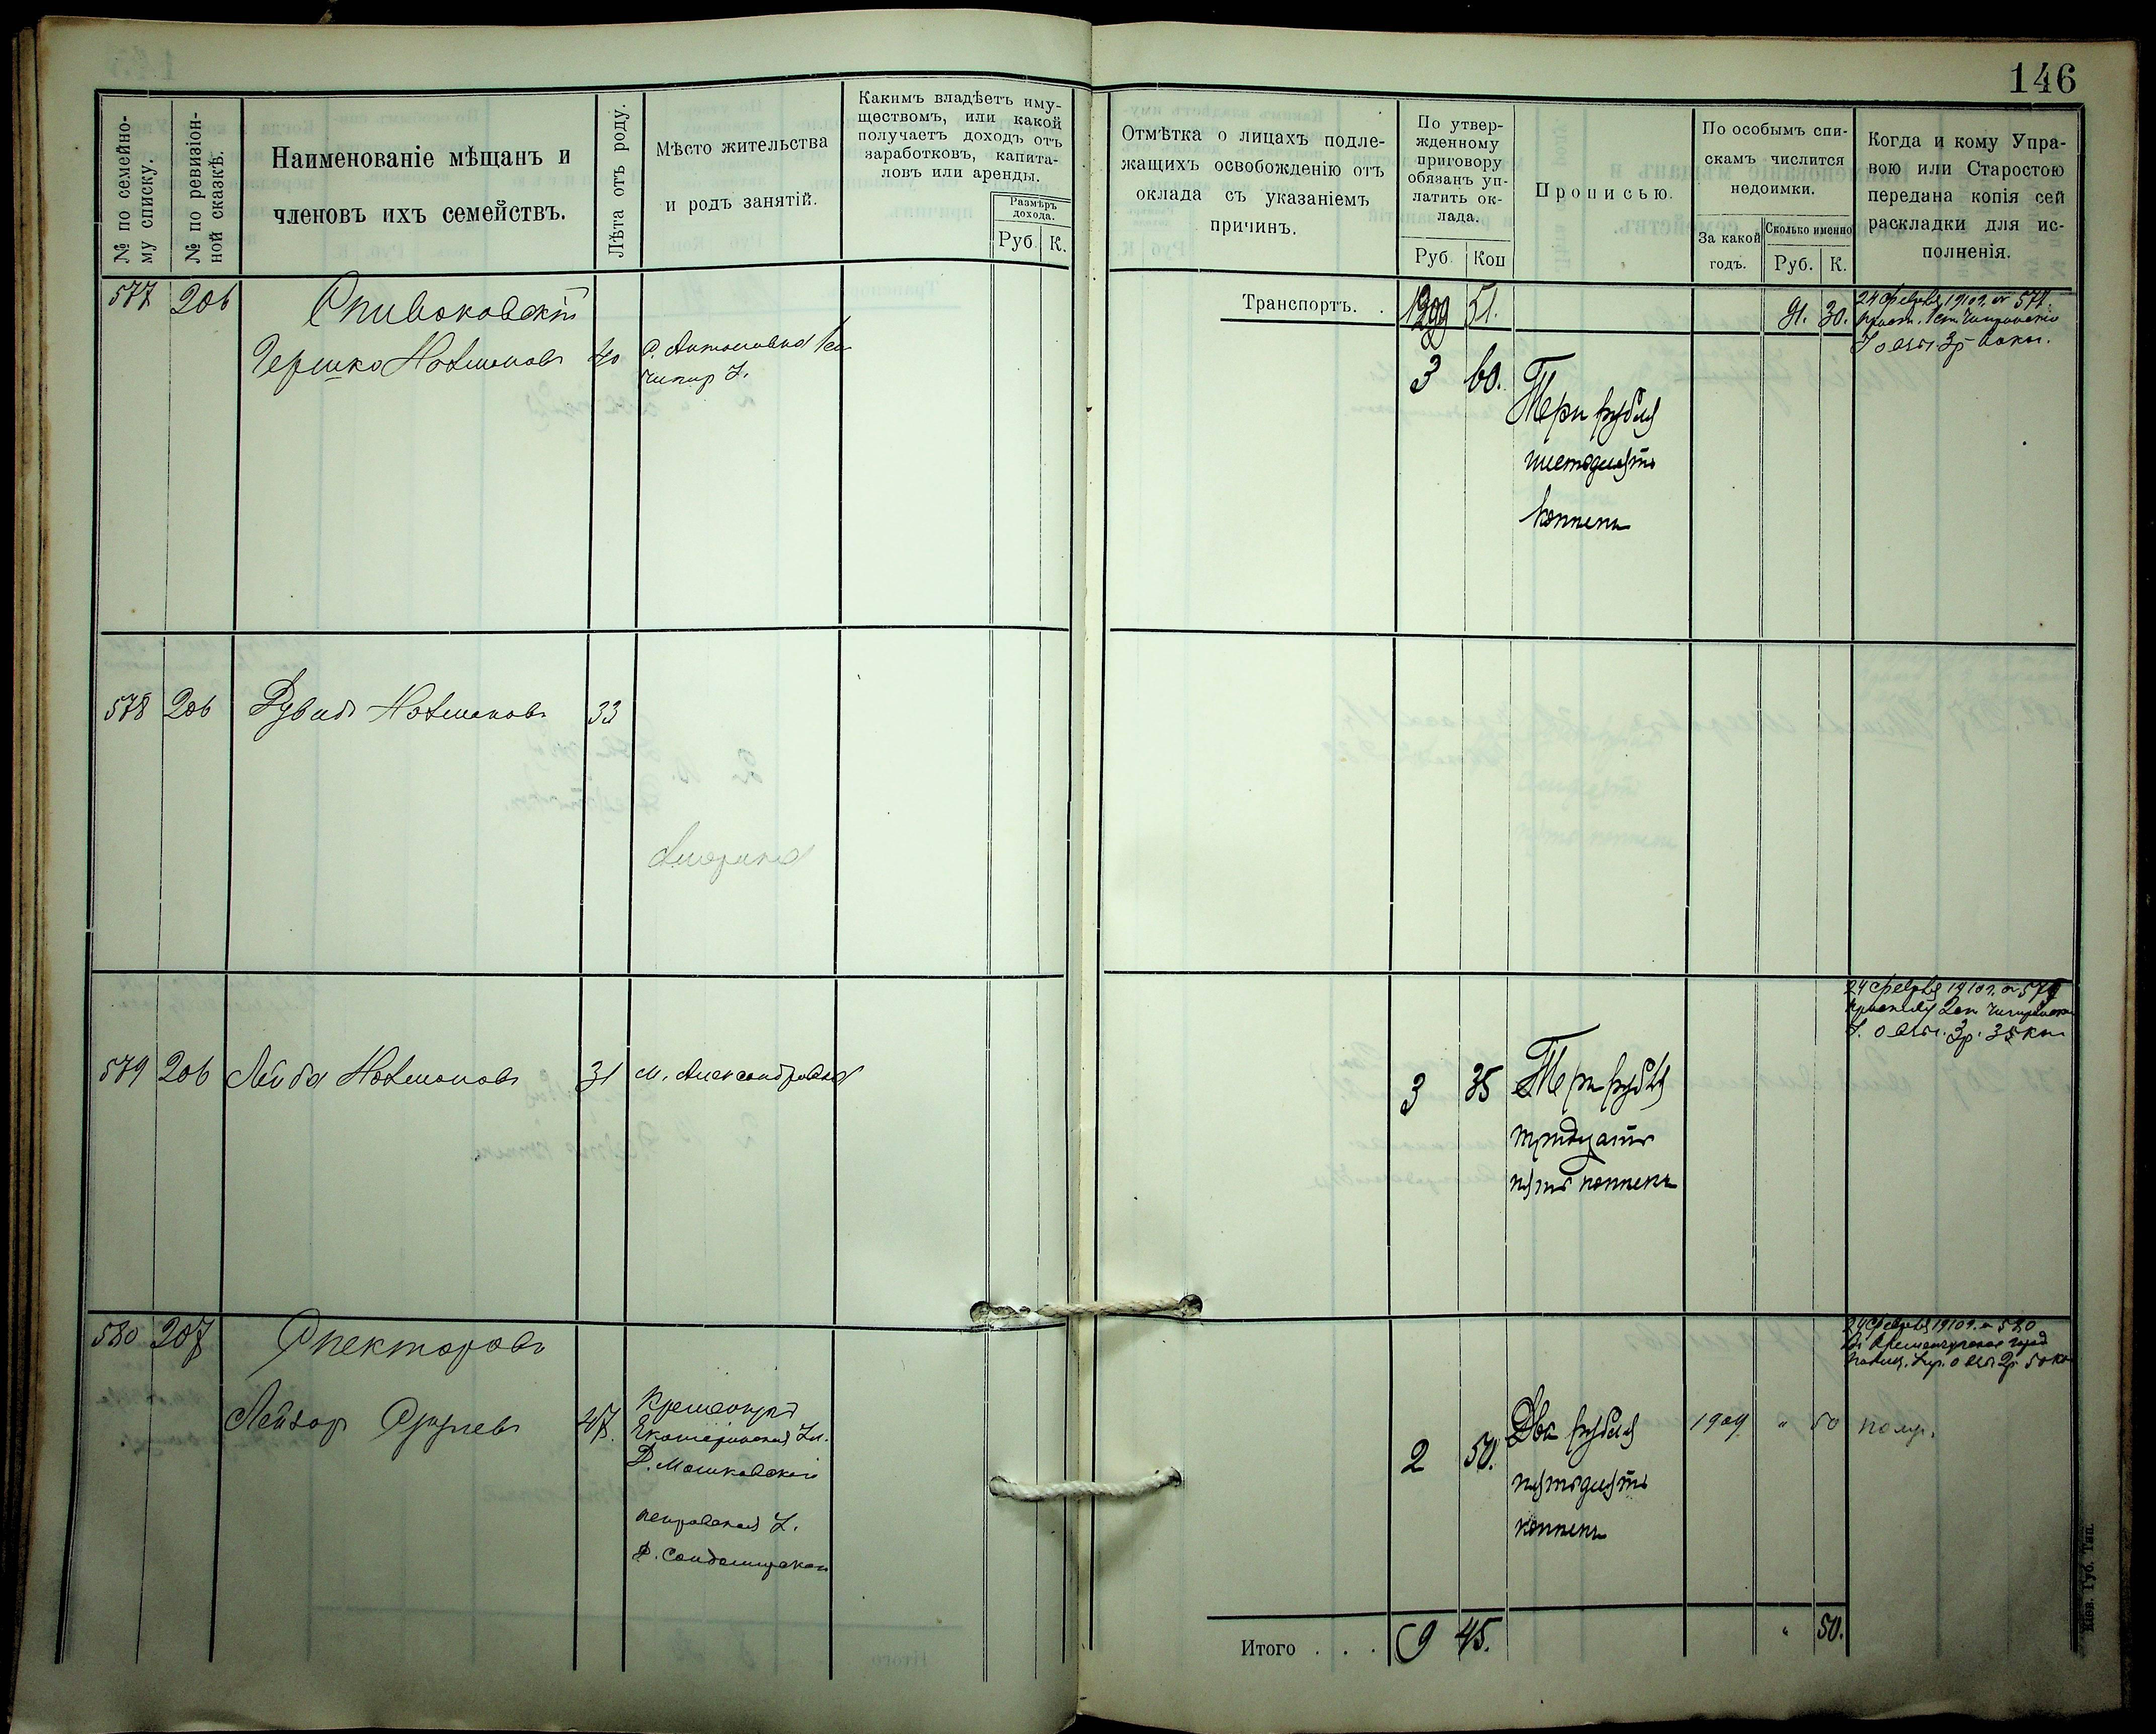 146
№ по семейно-
му списку.
№ по ревизіон-
ной сказкѣ.
Наименованіе мѣщанъ и
членовъ ихъ семействъ.
Лѣта отъ роду.
Мѣсто жительства
и родъ занятій.
Какимъ владѣетъ иму-
ществомъ, или какой
получаетъ доходъ отъ
заработковъ, капита-
ловъ или аренды.
Размѣръ
дохода.
Руб. К.
Отмѣтка о лицахъ подле-
жащихъ освобожденію отъ
оклада съ указаніемъ
причинъ.
По утвер-
жденному
приговору
обязанъ уп-
латить ок-
лада.
Руб. Коп
Прописью.
По особымъ спи-
скамъ числится
недоимки.
За какой
годъ.
Сколько именно
Руб. К.
Когда и кому Упра-
вою или Старостою
передана копія сей
раскладки для ис-
полненія.
Транспортъ. . 51. 91. 30.
577 206 Спиваковскій
Гершко Нахмановъ 40
3 60. Три рубля
шестьдесятъ
копѣекъ
24 февраля 1910 г. № 577
578 206 Рувинъ Нахмановъ 33
Америка
579 206 Лейба Нахмановъ 31 м. Александровка
3 35 Три рубля
тридцать
пять копѣекъ
24 февраля 1910 г. № 579
3р. 35 коп
580 207 Спекторовъ
Лейзор 47. Кременчугъ
Екатеринская ул.
Д.
Петровская у.
Д.
2 50. Два рубля
пятьдесятъ
копѣекъ
1909 " 50
24 февраля 1910 г. № 580
2р 50 ко
Итого . . . 9 45. " 50.
Кіев. Губ. Тип.